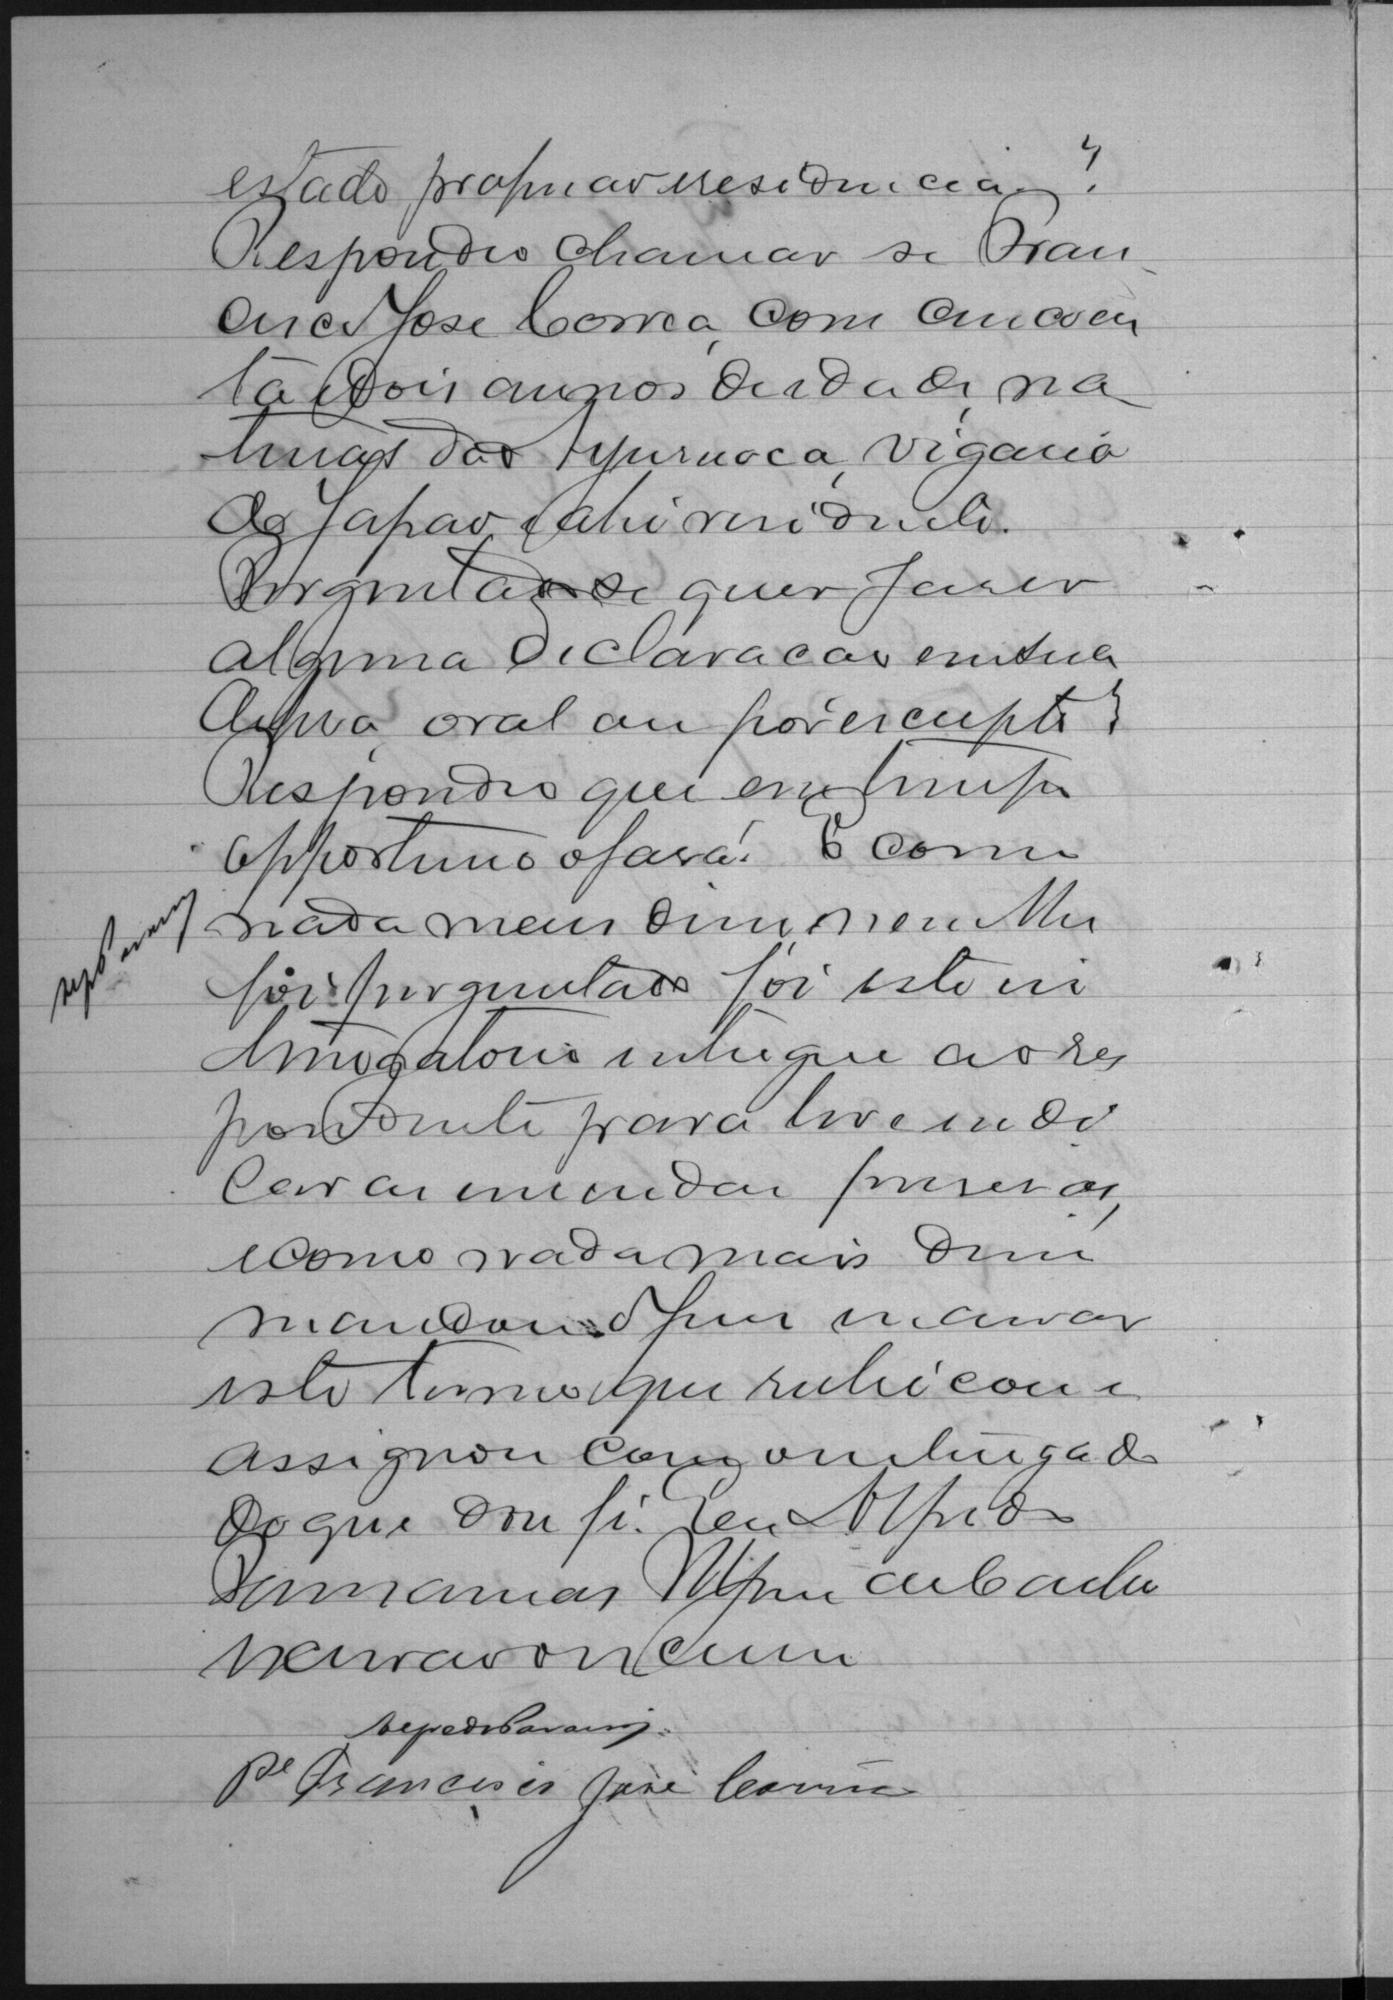 estado, profissão e residencia?
Respondeo chamar se Fran
cisco José Correa, com cincoen
ta e dois annos de idade, na
tural do Ayuruoca, vigario
de Japão e ahi residente.
Perguntado se quer fazer
alguma declaração em sua
defesa, oral ou por escripto?
Respondeo que em tempo
opportuno o fará. E como
nada mais disse, nem lhe
foi perguntado foi este in
terrogatorio entregue ao res
pondente para ler e indi
car as emendas precisas,
e como nada mais disse
mandou o Juiz lavrar
este termo que rubricou e
assignou com o interrogado
do que dou fé. Eu Alfredo
escrivão o escrevi
Pe Francisco José Corrêa